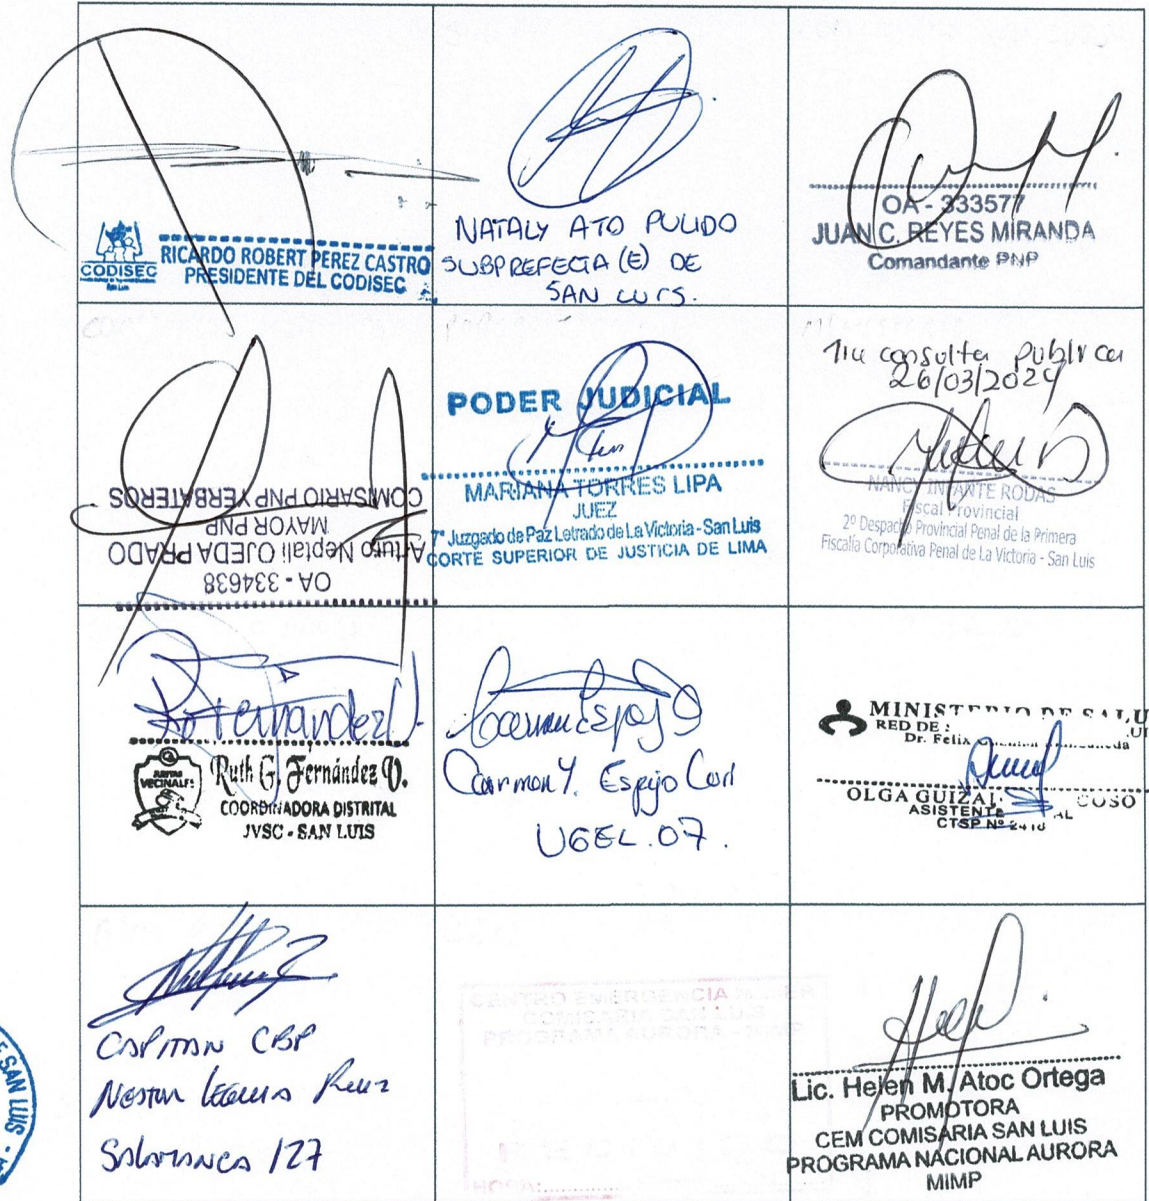 CODISEC
RICARDO ROBERT PEREZ CASTRO
PRESIDENTE DEL CODISEC
NATALY ATO PULIDO
SUBPREFECTA (E) DE
SAN LUIS.
OA - 333577
JUAN C. REYES MIRANDA
Comandante PNP
OA - 334638
Arturo Neptali OJEDA PRADO
MAYOR PNP
COMISARIO PNP YERBATEROS
PODER JUDICIAL
MARIANA TORRES LIPA
JUEZ
7° Juzgado de Paz Letrado de La Victoria - San Luis
CORTE SUPERIOR DE JUSTICIA DE LIMA
1ra consulta publica
26/03/2024
NANCY INFANTE RODAS
Fiscal Provincial
2º Despacho Provincial Penal de la Primera
Fiscalía Corporativa Penal de La Victoria - San Luis
JUNTAS
VECINALES
Ruth G. Fernández V.
COORDINADORA DISTRITAL
JVSC - SAN LUIS
Carmen Y. Espejo
UGEL.07.
MINISTERIO DE SALU
RED DE
Dr. Felix
OLGA
ASISTENTE
CTSP Nº
CAPITAN CBP
NESTOR
SALAMANCA 127
CENTRO EMERGENCIA MUJER
COMISARIA SAN LUIS
PROGRAMA AURORA - MIMP
HORA:
Lic. Helen M. Atoc Ortega
PROMOTORA
CEM COMISARIA SAN LUIS
PROGRAMA NACIONAL AURORA
MIMP
E SAN LUIS